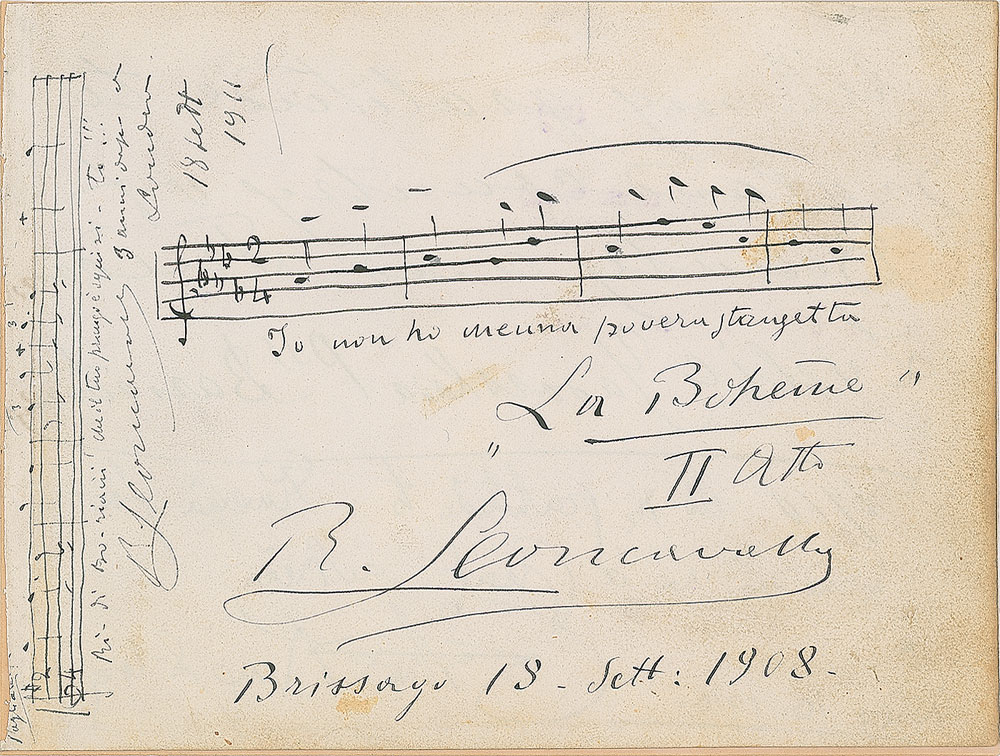 Io non ho menna povera stanzetta
"La Bohême"
II Atto
R. Leoncavallo
Brissago 18 - Sett: 1908 -
Ri - di Bo - 
3 anni dopo a
Londra.
R. Leoncavallo
18 sett
1911